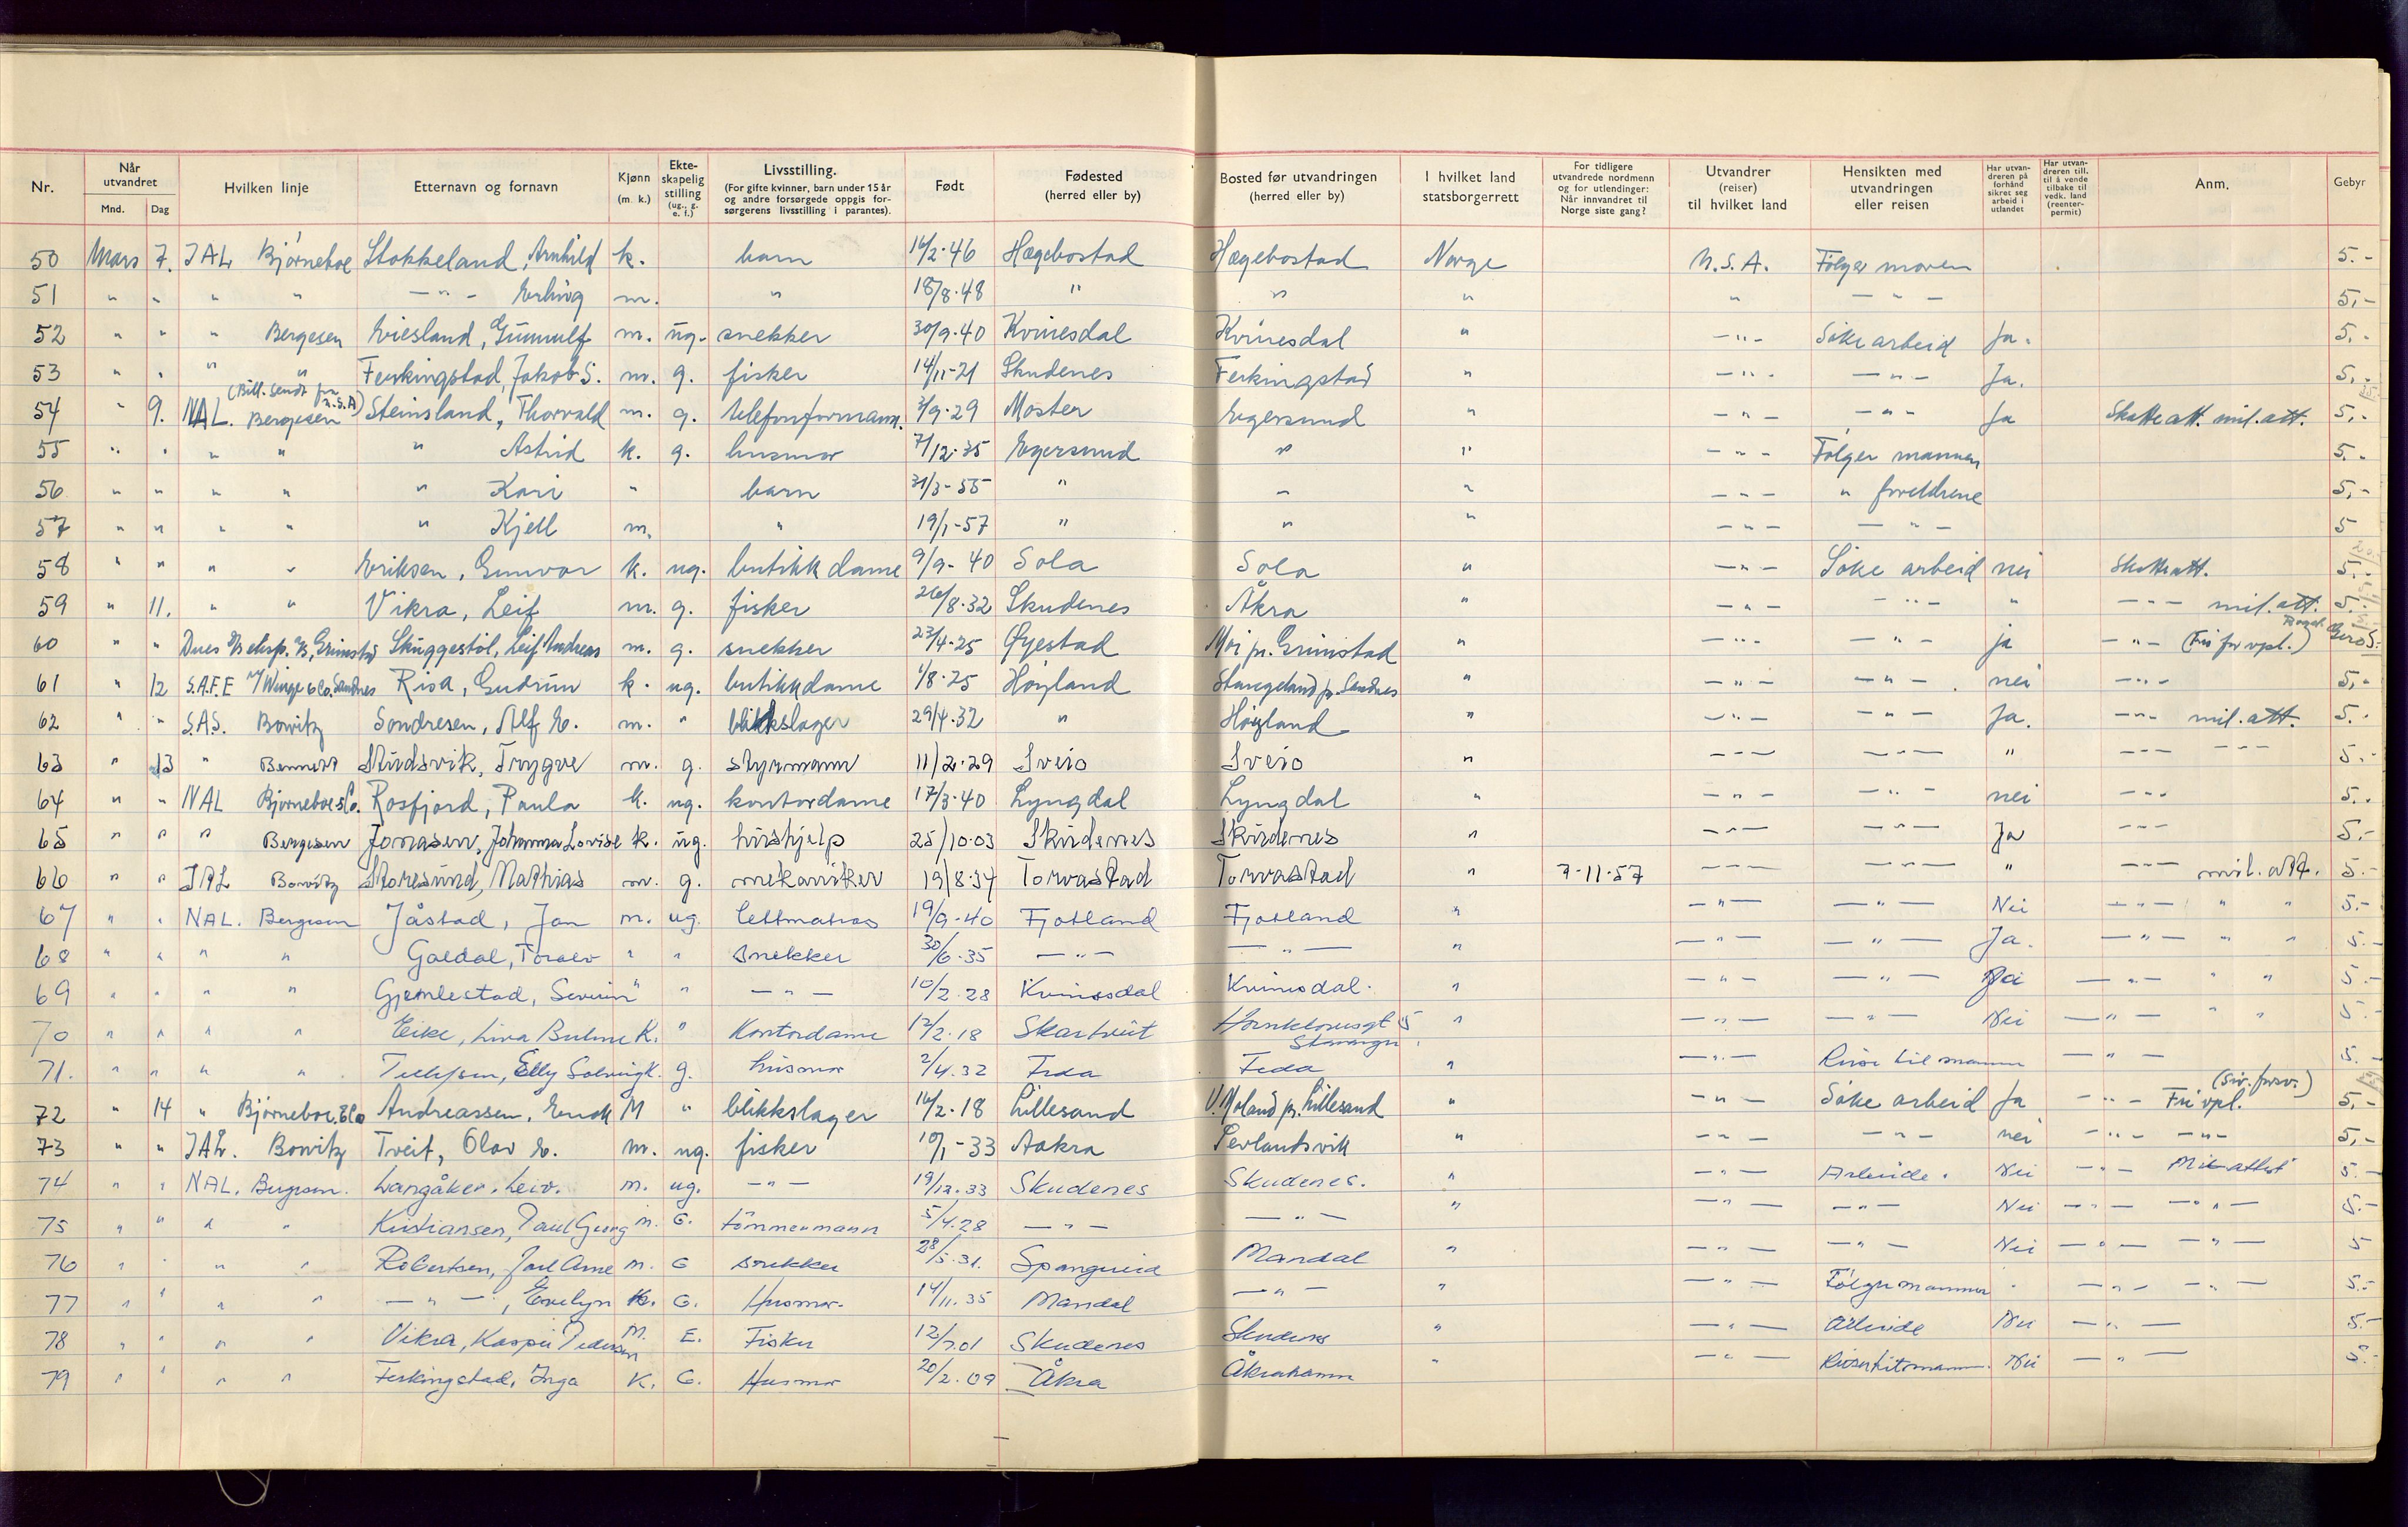 Nr. Når utvandret Mnd. Dag Hvilken linje Etternavn og fornavn Kjønn (m. k.) Ekteskapelig stilling (ug., g. e. f.) Livsstilling. (For gifte kvinner, barn under 15 år og andre forsørgede oppgis forsørgerens livsstilling i parantes). Født Fødested (herred eller by) Bosted før utvandringen (herred eller by) I hvilket land statsborgerrett For tidligere utvandrede nordmenn og for utlendinger: Når innvandret til Norge siste gang? Utvandrer (reiser) til hvilket land Hensikten med utvandringen eller reisen Har utvandreren på forhånd sikret seg arbeid i utlandet Har utvandreren till. til å vende tilbake til vedk. land (reenterpermit) Anm. Gebyr
50 Mars 7. IAL Bjørneboe Stokkeland, Arnhild k. barn 16/2·46 Hægebostad Hægebostad Norge U.S.A. Følger moren 5.-
51 " " " " — " — Erling m. " 18/8·48 " " " " — " — 5,-
52 " " " Bergesen Eiesland, Gunnulf m. ug. snekker 30/9·40 Kvinesdal Kvinesdal " — " — Søke arbeid Ja. 5,-
53 " " " " Ferkingstad, Jakob S. m. g. fisker 14/11-21 Skudenes Ferkingstad " — " — — " — Ja. 5,-
(Bill. sendt fra U.S.A)
54 " 9. NAL. Bergesen Steinsland, Thorvald m. g. telefonformann. 3/9·29 Moster Egersund " — " — — " — Ja Skatteatt. mil. att. 5,-
55 " " " " " Astrid k. g. husmor 7/12·35 Egersund " " — " — Følger mannen 5.-
56 " " " " " Kari " barn 31/3-55 " " " — " — " foreldrene 5,-
57 " " " " " Kjell m. " 19/1-57 " " " — " — — " — 5
58 " " " " Eriksen, Gunvor k. ug. butikkdame 9/9-40 Sola Sola " — " — Søke arbeid nei Skatteatt. 5,-
59 " 11. " " Vikra, Leif m. g. fisker 26/8·32 Skudenes Åkra " — " — — " — " — " — mil. att. 5.-
60 " " Dues Grimstad Skuggestøl, Leif Andreas m. g. snekker 23/4·25 Øyestad Moi pr. Grimstad " — " — — " — ja — " — (Fri for vpl.) Giro 5:
61 " 12 S.A.F.E Winge & Co. Sandnes Risa, Gudrun k. ug. butikkdame 1/8·25 Høyland Stangeland p. Sandnes " — " — — " — nei — " — 5,-
62 " " S.A.S. Bowitz Sondresen, Alf E. m. " blikkslager 29/4·32 " Høyland " — " — — " — Ja. — " — mil. att. 5.-
63 " 13 " Bennett Studsvik, Trygve m. g. styrmann 11/2·29 Sveio Sveio " — " — — " — " — " — — " — 5.-
64 " " NAL Bjørneboe & Co. Rosfjord, Paula k. ug. kontordame 17/3·40 Lyngdal Lyngdal " — " — — " — nei — " — 5.-
65 " " " Bergesen Jonasen, Johanna Lovise k. ug. hushjelp 25/10·03 Skudenes Skudenes " — " — — " — Ja — " — 5.-
66 " " IAL Bowitz Storesund, Mathias m. g. mekaniker 19/8·34 Torvastad Torvastad " 7·11·57 — " — — " — " — " — mil. att. 5.-
67 " " NAL. Bergesen Jåstad, Jan m. ug. lettmatros 19/9·40 Fjotland Fjotland " — " — — " — Nei — " — " " 5.-
68 " " " " Galdal, Toralv " " snekker 30/6·35 — " — — " — " — " — — " — Ja. — " — " " 5.-
69 " " " " Gjemlestad, Severin " " — " — 10/2·28 Kvinesdal Kvinesdal. " — " — — " — Nei — " — " " 5.-
70 " " " " Eike, k. " Kontordame 12/2·18 Skartveit 5 Stavanger " — " — — " — Nei — " — " " 5.-
71. " " " " Elly Solveig k. g. husmor 2/4·32 Feda Feda " — " — Reise til mann — " — 5.-
72 " 14 " Bjørneboe & Co Andreassen, M " blikkslager 16/2·18 Lillesand V. Moland pr. Lillesand " — " — Søke arbeid Ja — " — Fri vpl. (siv. forsv.) 5,-
73 " " IAL. Bowitz Tveit, Olav E. m. ug. fisker 10/1-33 Aakra Sevlandsvik " — " — — " — nei — " — — " — 5,-
74 " " NAL. Bergesen. Langåker, Leiv. m. ug. — " — 19/12·33 Skudenes Skudenes. " — " — Arbeide. Nei — " — Milattest 5.-
75 " " " " Kristiansen, Paul Georg m. G. tømmermann 5/4·28 — " — — " — " — " — — " — Nei — " — — " — 5.-
76 " " " " Robertsen, Jarl Arne m. G snekker 28/5·31. Spangereid Mandal " — " — — " — Nei — " — — " — 5
77 " " " " — " —, Evelyn k. G. Husmor. 14/11·35 Mandal — " — " — " — Følger mannen " — " — — " — 5.-
78 " " " " Vikra, Kasper Pedersen M. E. Fisker 12/7·01 Skudenes Skudenes " — " — Arbeide Nei — " — 5.-
79 " " " " Ferkingstad, Inga K. G. Husmor 20/2·09 Åkra Åkrahamn " — " — Reiser til mann. Nei — " — 5.-